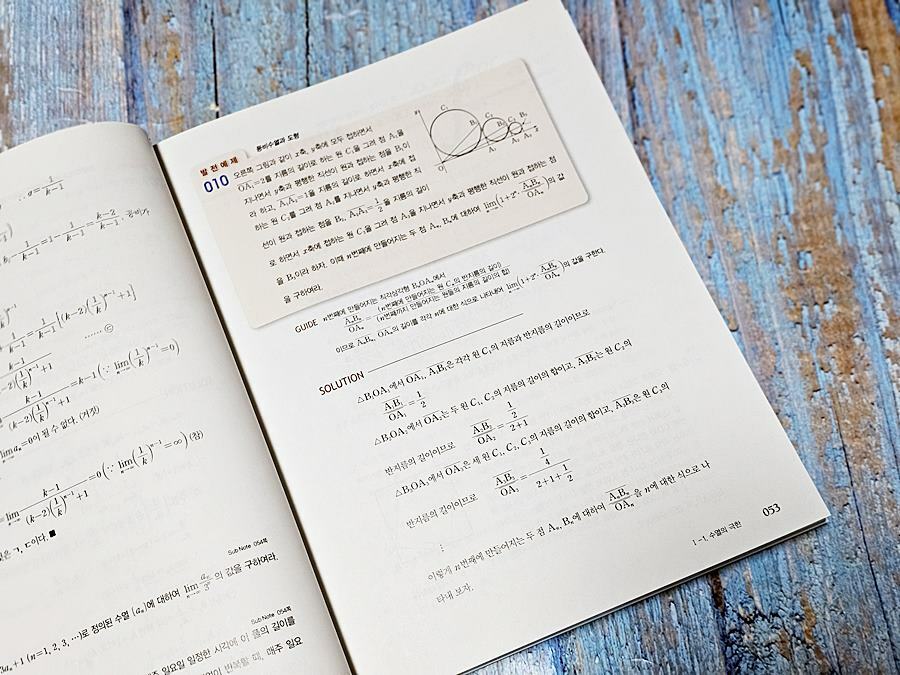 ∴ a = 1/(k-1)
1/(k-1) = 1 - 1/(k-1) = (k-2)/(k-1), 공비가
1/(k-1) = 1/(k-1) [(k-2)(1/k)^(n-1) + 1]
…… ㉢
(k-2)(1/k)^(n-1) + 1
k-1 / ((k-2)(1/k)^(n-1) + 1) = k-1 (∵ lim n→∞ (1/k)^(n-1) = 0)
lim n→∞ aₙ = 0이 될 수 없다. (거짓)
= lim n→∞ (k-1) / ((k-2)(1/k)^(n-1) + 1) = 0 (∵ lim n→∞ (1/k)^(n-1) = ∞) (참)
은 ㄱ, ㄷ이다. ■
Sub Note 054쪽
aₙ+1 (n=1, 2, 3, ⋯)로 정의된 수열 {aₙ}에 대하여 lim n→∞ aₙ/3ⁿ의 값을 구하여라.
Sub Note 054쪽
일요일 일정한 시각에 이 풀의 길이를
반복할 때, 매주 일요
등비수열과 도형
발전예제
010 오른쪽 그림과 같이 x축, y축에 모두 접하면서
OA₁=2를 지름의 길이로 하는 원 C₁을 그려 점 A₁을
지나면서 y축과 평행한 직선이 원과 접하는 점을 B₁이
라 하고, A₁A₂=1을 지름의 길이로 하면서 x축에 접
하는 원 C₂를 그려 점 A₂를 지나면서 y축과 평행한 직
선이 원과 접하는 점을 B₂, A₂A₃=1/2을 지름의 길이
로 하면서 x축에 접하는 원 C₃을 그려 점 A₃을 지나면서 y축과 평행한 직선이 원과 접하는 점
을 B₃이라 하자. 이때 n번째에 만들어지는 두 점 Aₙ, Bₙ에 대하여 lim n→∞ (1+2ⁿ·AₙBₙ/OAₙ)의 값
을 구하여라.
y C₁ B₁ C₂ B₂ C₃ B₃
O A₁ A₂ A₃ x
GUIDE n번째에 만들어지는 직각삼각형 BₙOAₙ에서
AₙBₙ/OAₙ = (n번째에 만들어지는 원 Cₙ의 반지름의 길이)/(n번째까지 만들어지는 원들의 지름의 길이의 합)
이므로 AₙBₙ, OAₙ의 길이를 각각 n에 대한 식으로 나타내어 lim n→∞ (1+2ⁿ·AₙBₙ/OAₙ)의 값을 구한다.
SOLUTION
△B₁OA₁에서 OA₁, A₁B₁은 각각 원 C₁의 지름과 반지름의 길이이므로
A₁B₁/OA₁ = 1/2
△B₂OA₂에서 OA₂는 두 원 C₁, C₂의 지름의 길이의 합이고, A₂B₂는 원 C₂의
반지름의 길이이므로 A₂B₂/OA₂ = (1/2)/(2+1)
△B₃OA₃에서 OA₃은 세 원 C₁, C₂, C₃의 지름의 길이의 합이고, A₃B₃은 원 C₃의
반지름의 길이이므로 A₃B₃/OA₃ = (1/4)/(2+1+1/2)
⋮
이렇게 n번째에 만들어지는 두 점 Aₙ, Bₙ에 대하여 AₙBₙ/OAₙ을 n에 대한 식으로 나
타내 보자.
Ⅰ-1. 수열의 극한 053